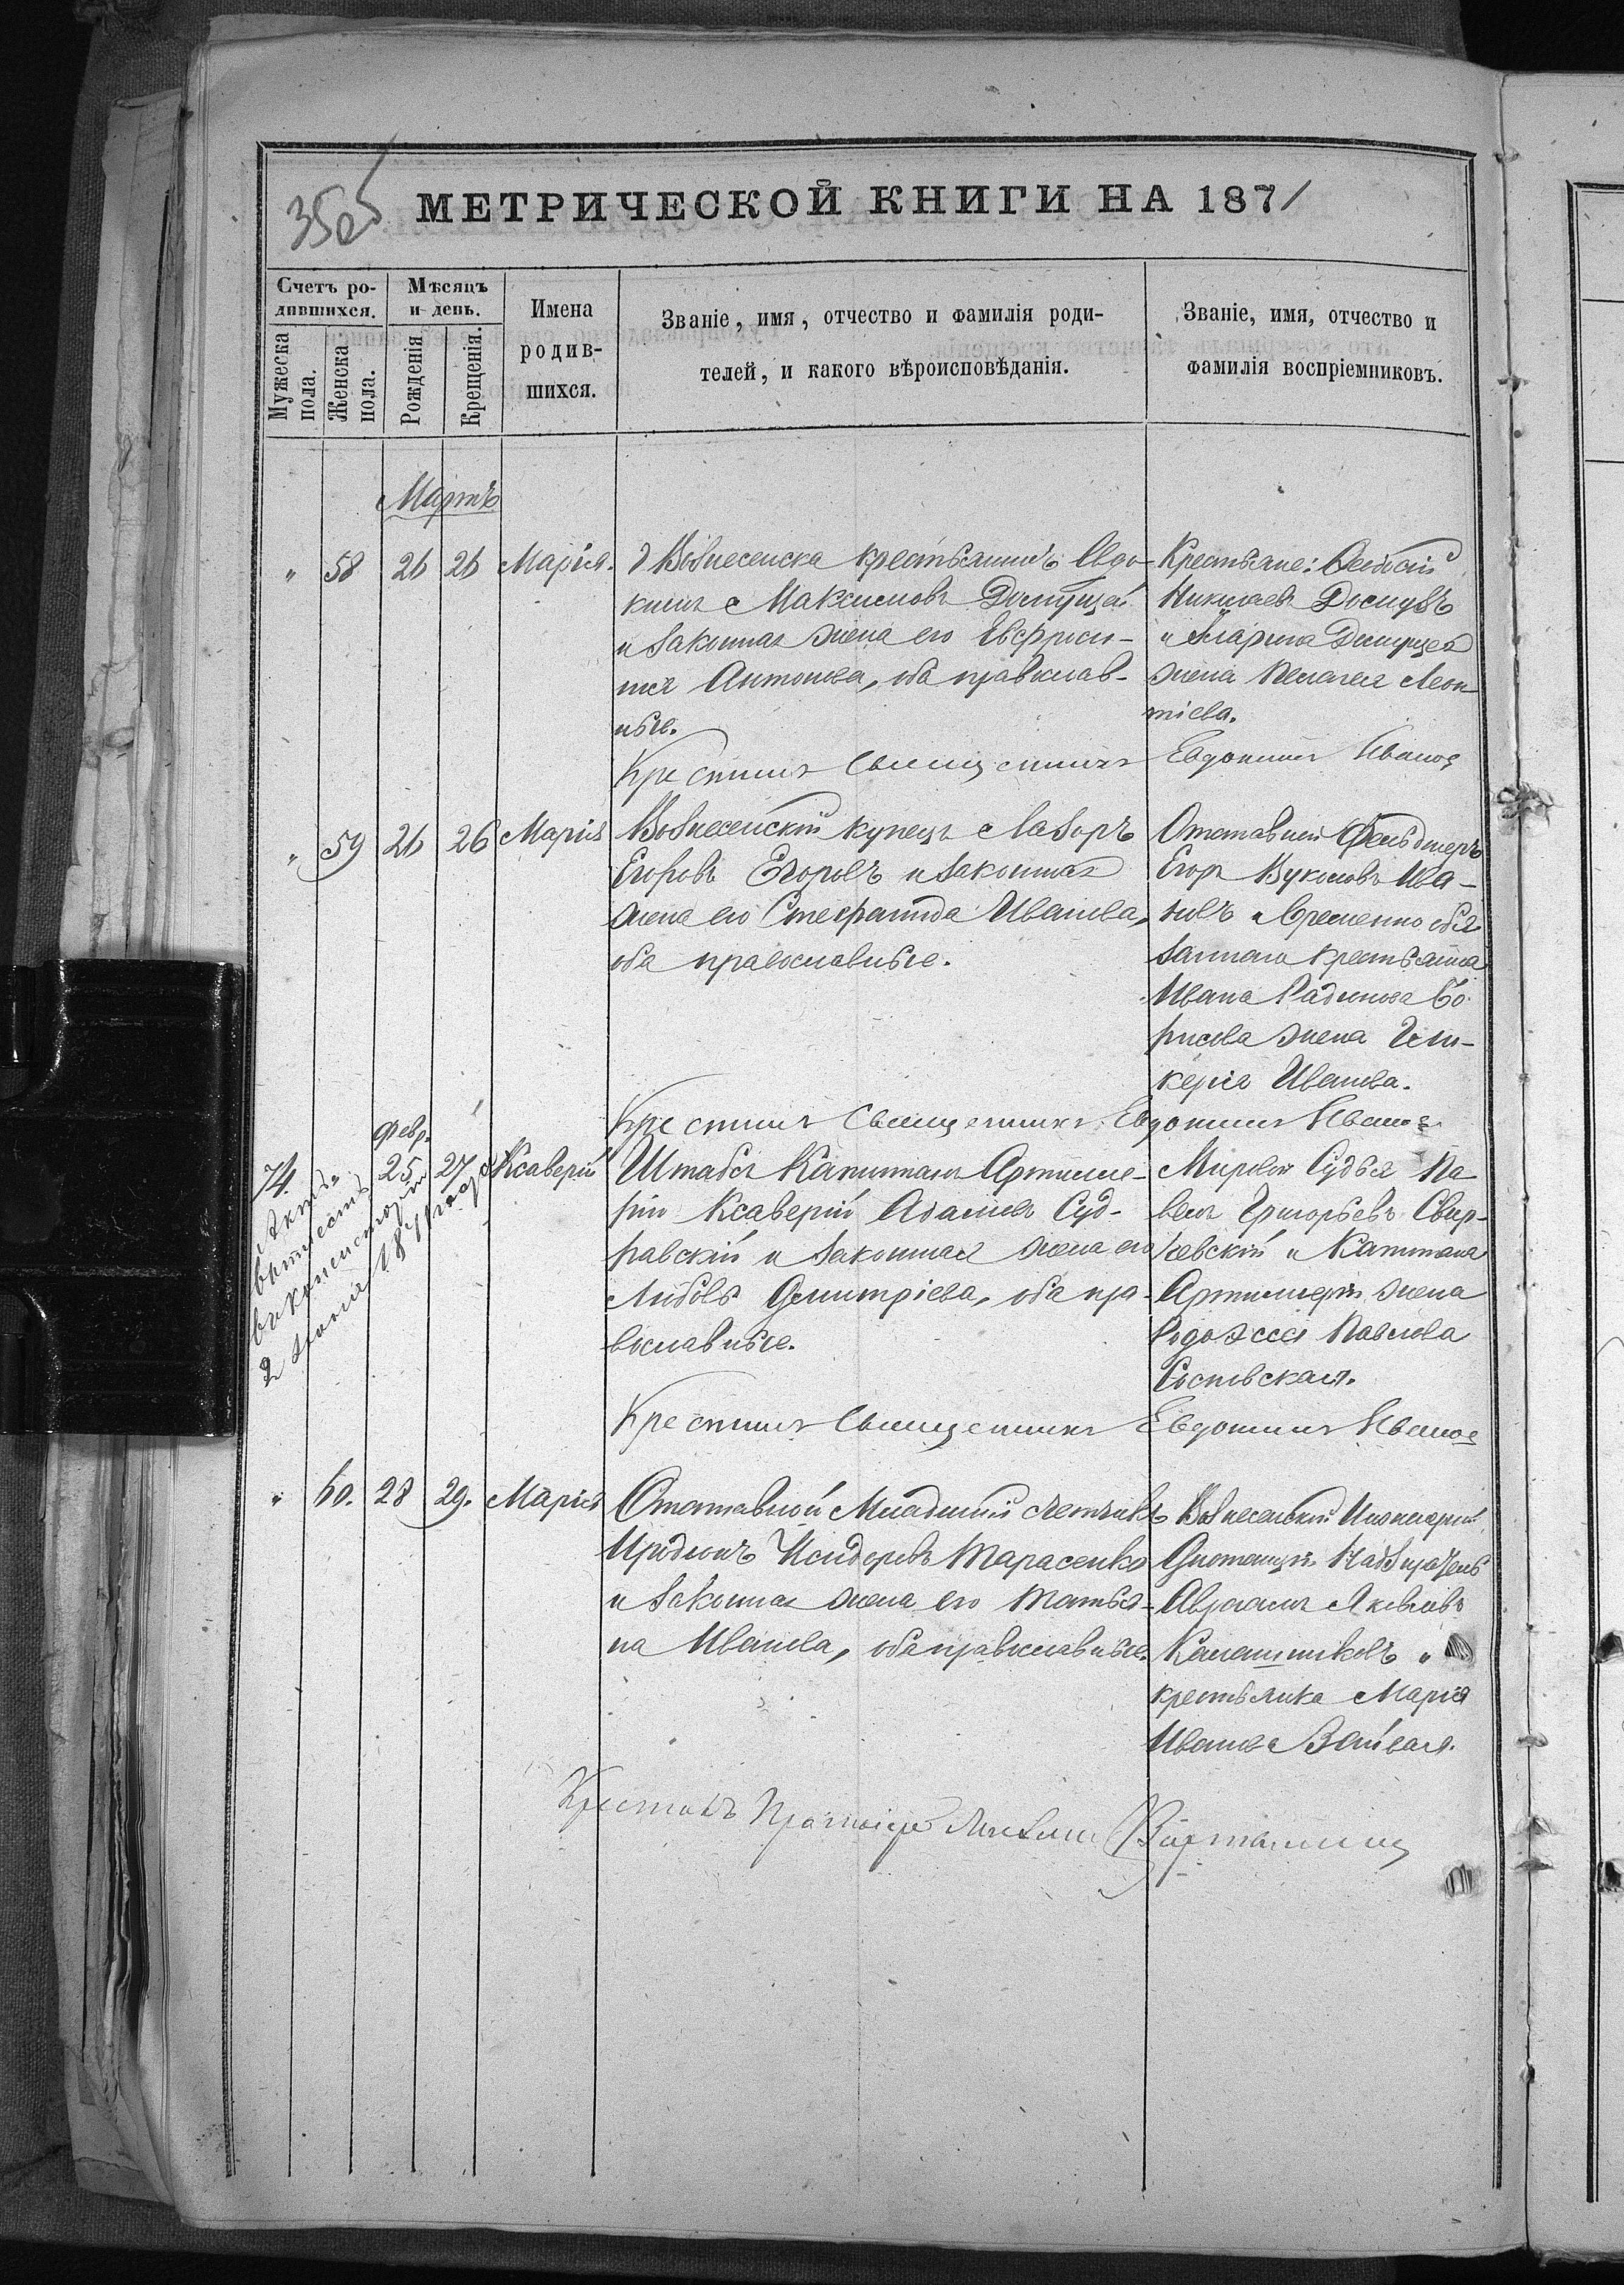 35об
МЕТРИЧЕСКОЙ КНИГИ НА 1871
Счетъ ро-
дившихся.
Мужеска
пола.
Женска
пола.
Мѣсяцъ
и день.
Рожденія
Крещенія.
Имена
родив-
шихся.
Званіе, имя, отчество и фамилія роди-
телей, и какого вѣроисповѣданія.
Званіе, имя, отчество и
фамилія воспріемниковъ.
Мартъ
" 58 26 26 Марія.
г Вознесенска крестьянинъ Евдо-
кимъ Максимовъ
и законная жена его Евфроси-
нія Антонова, оба православ-
ные.
Крестьяне:
Николаевъ
и
жена Пелагея Леон-
тіева.
Крестилъ Священникъ Евдокимъ Ивановъ
" 59 26 26 Марія
Вознесенскій купецъ Лазоръ
Егоровъ Егоровъ и законная
жена его Стефанида Иванова,
оба православные.
Отставной Фельдшеръ
Егоръ Вуколовъ Ива-
новъ и временно обя
заннаго крестьянина
Ивана Радіонова Бо-
рисова жена Гли-
керія Иванова.
Крестилъ Священникъ Евдокимъ Ивановъ
74.
Февр.
25 27 Ксаверій
2 Іюня 1871 года
Штабсъ Капитанъ Артилле-
ріи Ксаверій Адамовъ Суд-
равскій и законная жена его
Любовь Димитріева, оба пра-
вославные.
Мировой Судья Па-
велъ Григорьевъ Свир-
чевскій и Капитана
Артиллеріи жена
Павлова
Крестилъ Священникъ Евдокимъ Ивановъ
" 60. 28 29. Марія
Отставной Младшій
Иродіонъ Исидоровъ Тарасенко
и законная жена его Татья-
на Иванова, оба православные.
Вознесенскій Инженерной
Дистанціи Надзиратель
Авраамъ Яковлевъ
Калашниковъ и
крестьянка Марія
Иванова
Крестилъ Протоіерей